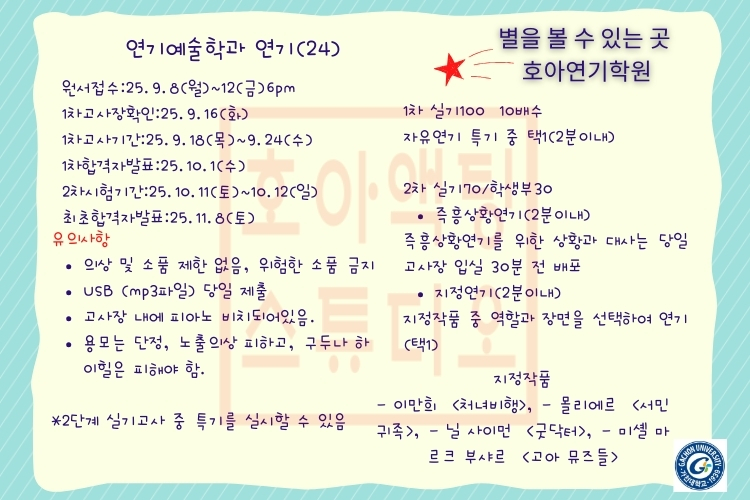 연기예술학과 연기(24)
별을 볼 수 있는 곳
호아연기학원
원서접수:25.9.8(월)~12(금)6pm
1차고사장확인:25.9.16(화)
1차고사기간:25.9.18(목)~9.24(수)
1차합격자발표:25.10.1(수)
2차시험기간:25.10.11(토)~10.12(일)
최초합격자발표:25.11.8(토)
유의사항
• 의상 및 소품 제한 없음, 위험한 소품 금지
• USB (mp3파일) 당일 제출
• 고사장 내에 피아노 비치되어있음.
• 용모는 단정, 노출의상 피하고, 구두나 하
이힐은 피해야 함.
*2단계 실기고사 중 특기를 실시할 수 있음
1차 실기100 10배수
자유연기 특기 중 택1(2분이내)
2차 실기70/학생부30
• 즉흥상황연기(2분이내)
즉흥상황연기를 위한 상황과 대사는 당일
고사장 입실 30분 전 배포
• 지정연기(2분이내)
지정작품 중 역할과 장면을 선택하여 연기
(택1)
지정작품
- 이만희 <처녀비행>, - 몰리에르 <서민
귀족>, - 닐 사이먼 <굿닥터>, - 미셸 마
르크 부샤르 <고아 뮤즈들>
호아액팅
스튜디오
GACHON UNIVERSITY
가천대학교 1939